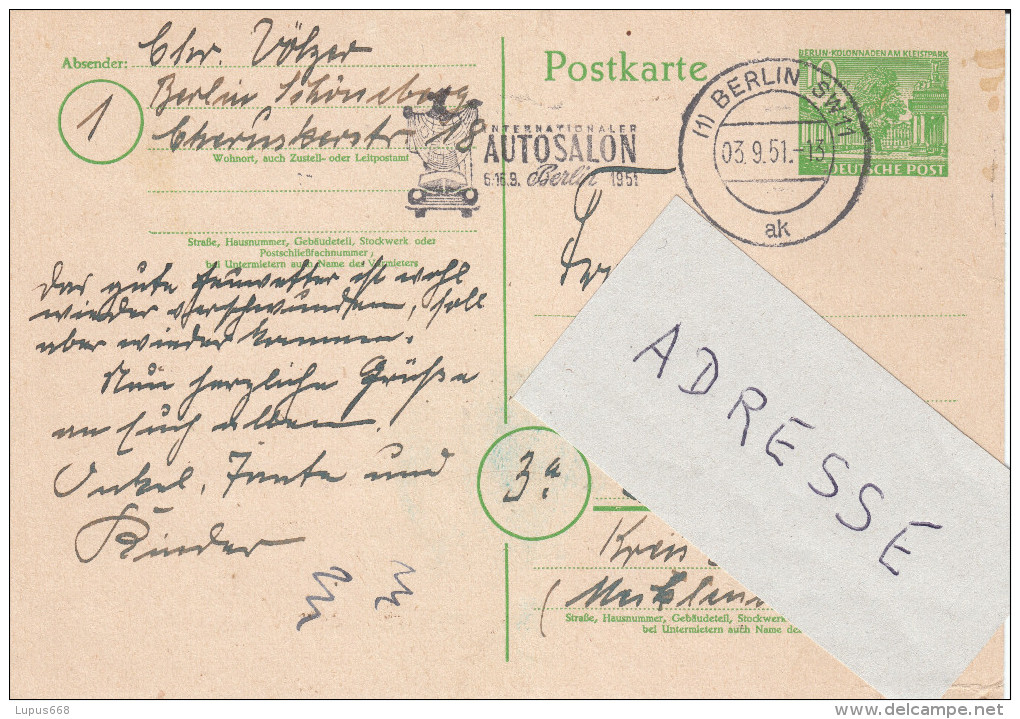 Absender: Chr. Völzer
1
Berlin Schöneberg
Cheruskerstr. 18
Wohnort, auch Zustell- oder Leitpostamt
Straße, Hausnummer, Gebäudeteil, Stockwerk oder
Postschließfachnummer;
bei Untermietern auch Name des Vermieters
INTERNATIONALER
AUTOSALON
6.-16.9. Berlin 1951
Postkarte
(1) BERLIN SW 11
03.9.51.-13
ak
BERLIN-KOLONNADEN AM KLEISTPARK
10
DEUTSCHE POST
Das gute Heuwetter ist wohl
wieder verschwunden, soll
aber wieder kommen.
Nun herzliche Grüße
an Euch allen
Onkel, Tante und
Kinder
ADRESSE
3a
Kreis
(Mecklen
Straße, Hausnummer, Gebäudeteil, Stockwerk
bei Untermietern auch Name des
Lupus668
www.delcampe.net